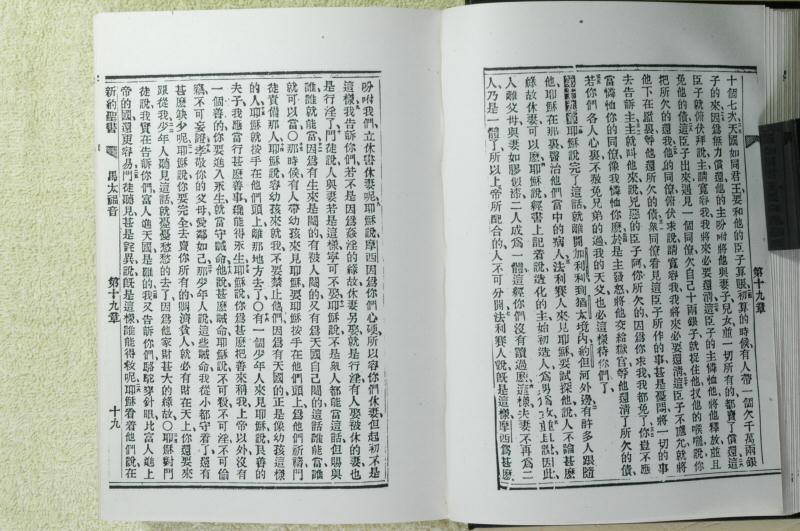 第十九章
十個七次天國如同君王要和他的臣子算賬初算的時候有人帶一個欠千萬兩銀
子的來因爲無力償還他的主吩咐將他與妻子兒女並一切所有的都賣了償還這
臣子就俯伏拜說主請寬容我我將來必要還淸這臣子的主憐恤他將他釋放並且
免他的債這臣子出來遇見一個同僚欠自己十兩銀子就捉住他扠他的喉嚨說你
把所欠的還我他的同僚俯伏求說請寬容我我將來必要還淸這臣子不應允就將
他下在監裏等他還所欠的債衆同僚看見這臣子所作的事甚是憂悶將一切的事
去告訴主主就叫他來說兇惡的臣子阿你所欠的因爲你求我我都免了你豈不應
當憐恤你的同僚像我憐恤你麽於是主發怒將他交給獄官等他還淸了所欠的債
若你們各人心裏不赦免兄弟的過我的天父也必這樣待你們了
耶穌說完了這話就離開加利利到猶太境內約但河外邊有許多人跟隨
他耶穌在那裏醫治他們當中的病人法利賽人來見耶穌要試探他說人不論甚麽
緣故休妻可以麽耶穌說經書上記着說造化的主始初造人
人離父母與妻如膠似漆二人成爲一體這經你們沒有讀過麽這樣夫妻不再爲二
人乃是一體了所以上帝所配合的人不可分開法利賽人說旣是這樣摩西爲甚麽
吩咐我們立休書休妻呢耶穌說摩西因爲你們心硬所以容你們休妻但起初不是
這樣我告訴你們若不是因爲姦淫的緣故休妻另娶就是行淫有人娶被休的妻也
是行淫了門徒說人與妻若是這樣寧可不娶耶穌說不是衆人都能當這話但賜與
誰誰就能當因爲有生來是閹的有被人閹的又有爲天國自己閹的這話誰能當誰
就可以當〇那時候有人帶幼孩來見耶穌要耶穌按手在他們頭上爲他們祈禱門
徒責備那人耶穌說容幼孩來就我不要禁止他們因爲有天國的正是像幼孩這樣
的人耶穌按手在他們頭上離那地方去了〇有一個少年人來見耶穌說良善的
夫子我應當行甚麽善事纔能得永生耶穌說你爲甚麽把善來稱我上帝以外沒有
一個善的你要進入永生就當守誡命他說甚麽誡命耶穌說不可殺不可淫不可偷
竊不可妄證孝敬你的父母愛鄰如己那少年人說這些誡命我從小都守着了還有
甚麽缺少呢耶穌說你要完全去賣你所有的賙濟貧人就必有財在天上你還要來
跟從我少年人聽見這話就憂憂愁愁的去了因爲他家財甚大的緣故〇耶穌對門
徒說我實在告訴你們富人進天國是難的我又告訴你們駱駝穿針眼比富人進上
帝的國還更容易門徒聽見甚是詫異說旣是這樣誰能得救呢耶穌看着他們說在
新約聖書 馬太福音 第十九章 十九